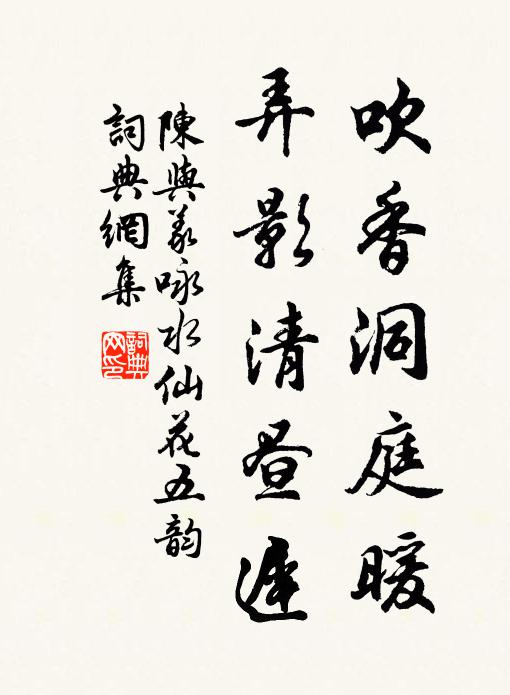 吹香洞庭暖
弄影清昼遲
陳與義咏水仙花五韵
詞典網集
詞典網印